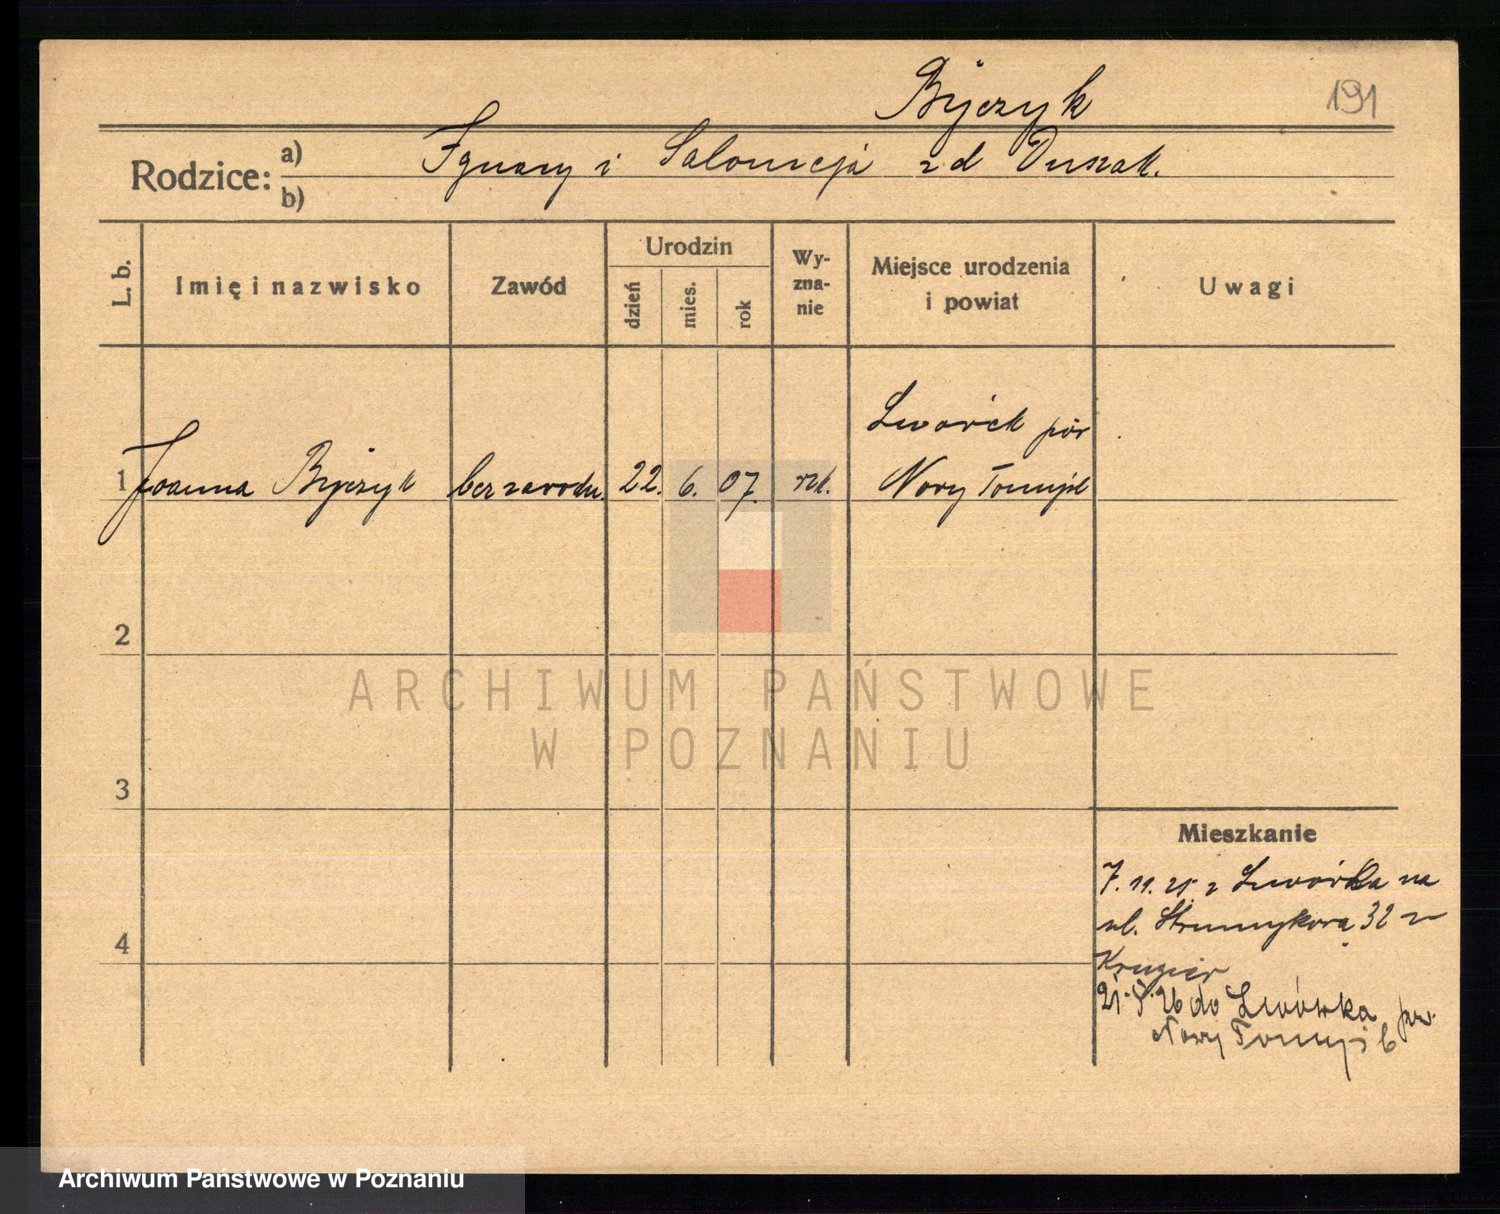 Bijczyk
191
Rodzice: a) Ignacy i Salomeja zd Duszak.
b)
L. b.
Imię i nazwisko
Zawód
Urodzin
dzień
mies.
rok
Wy-
zna-
nie
Miejsce urodzenia
i powiat
Uwagi
Lwówek pow
1 Joanna Bijczyk bez zawodu. 22. 6. 07. rzk. Nowy Tomyśl
2
ARCHIWUM PAŃSTWOWE
W POZNANIU
3
Mieszkanie
7. 11. 25. z Lwówka na
4
ul. Strumykowa 32 u
21. 5. 26 do Lwówka pow.
Nowy Tomyśl
Archiwum Państwowe w Poznaniu